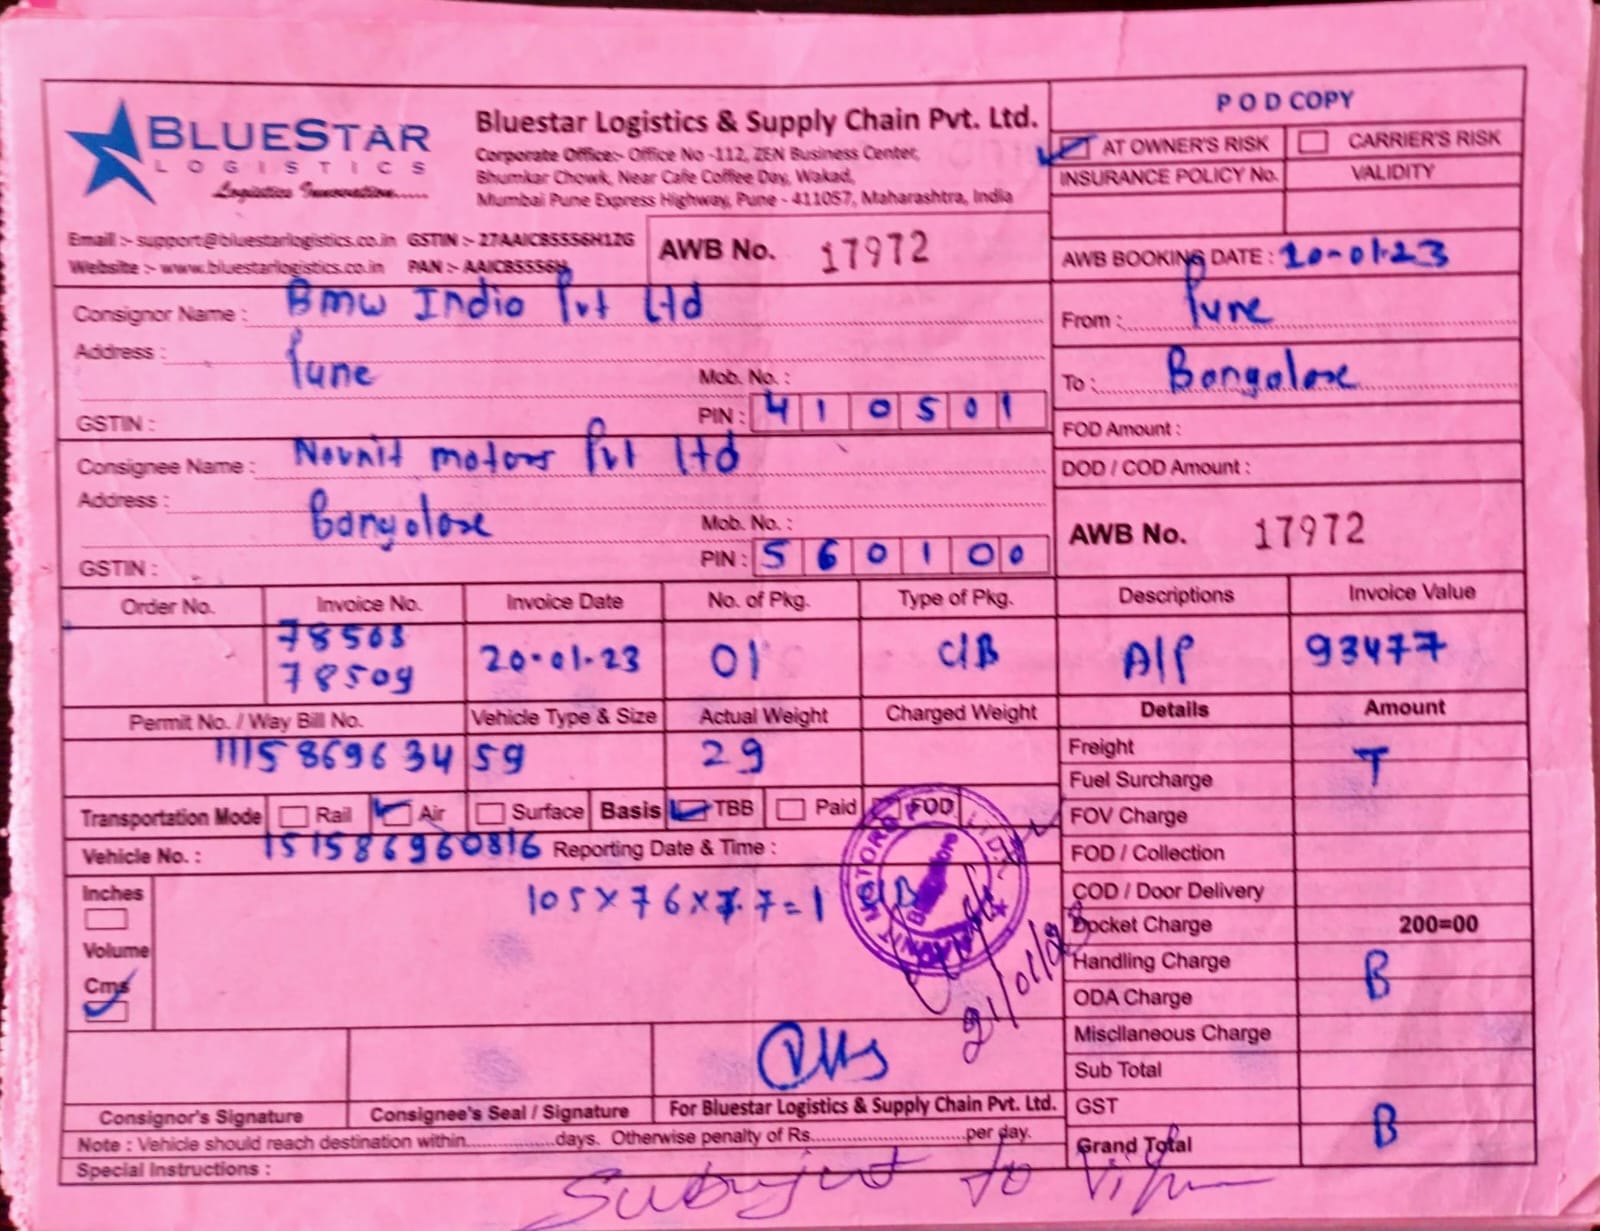 BLUESTAR
LOGISTICS
Logistics Innovation......
Bluestar Logistics & Supply Chain Pvt. Ltd.
Corporate Office:- Office No -112, ZEN Business Center,
Bhumkar Chowk, Near Cafe Coffee Day, Wakad,
Mumbai Pune Express Highway, Pune - 411057, Maharashtra, India
POD COPY
AT OWNER'S RISK CARRIER'S RISK
INSURANCE POLICY No. VALIDITY
Email :- support@bluestarlogistics.co.in GSTIN :- 27AAICB5556H1ZG
Website :- www.bluestarlogistics.co.in PAN :- AAICB5556H
AWB No. 17972
AWB BOOKING DATE : 20-01-23
Consignor Name : Bmw Indio Pvt Ltd
Address : Pune
Mob. No. :
GSTIN : PIN : 410501
From : Pune
To : Bangalore
FOD Amount :
DOD / COD Amount :
Consignee Name : Navnit motors Pvt Ltd
Address : Bangalore
Mob. No. :
GSTIN : PIN : 560100
AWB No. 17972
Order No. Invoice No. Invoice Date No. of Pkg. Type of Pkg. Descriptions Invoice Value
78508
78509 20-01-23 01 C/B A/P 93477
Permit No. / Way Bill No. Vehicle Type & Size Actual Weight Charged Weight Details Amount
1115869634 59 29
Freight
Fuel Surcharge T
Transportation Mode Rail Air Surface Basis TBB Paid FOD
FOV Charge
Vehicle No. : 151586960816 Reporting Date & Time :
FOD / Collection
Inches
Volume
Cms
105×76×77=1 C/B
COD / Door Delivery
Docket Charge 200=00
Handling Charge B
ODA Charge
21/01/23
Miscllaneous Charge
Sub Total
Consignor's Signature Consignee's Seal / Signature For Bluestar Logistics & Supply Chain Pvt. Ltd.
GST
Grand Total B
Note : Vehicle should reach destination within.................days. Otherwise penalty of Rs............................per day.
Special Instructions :
Subject to